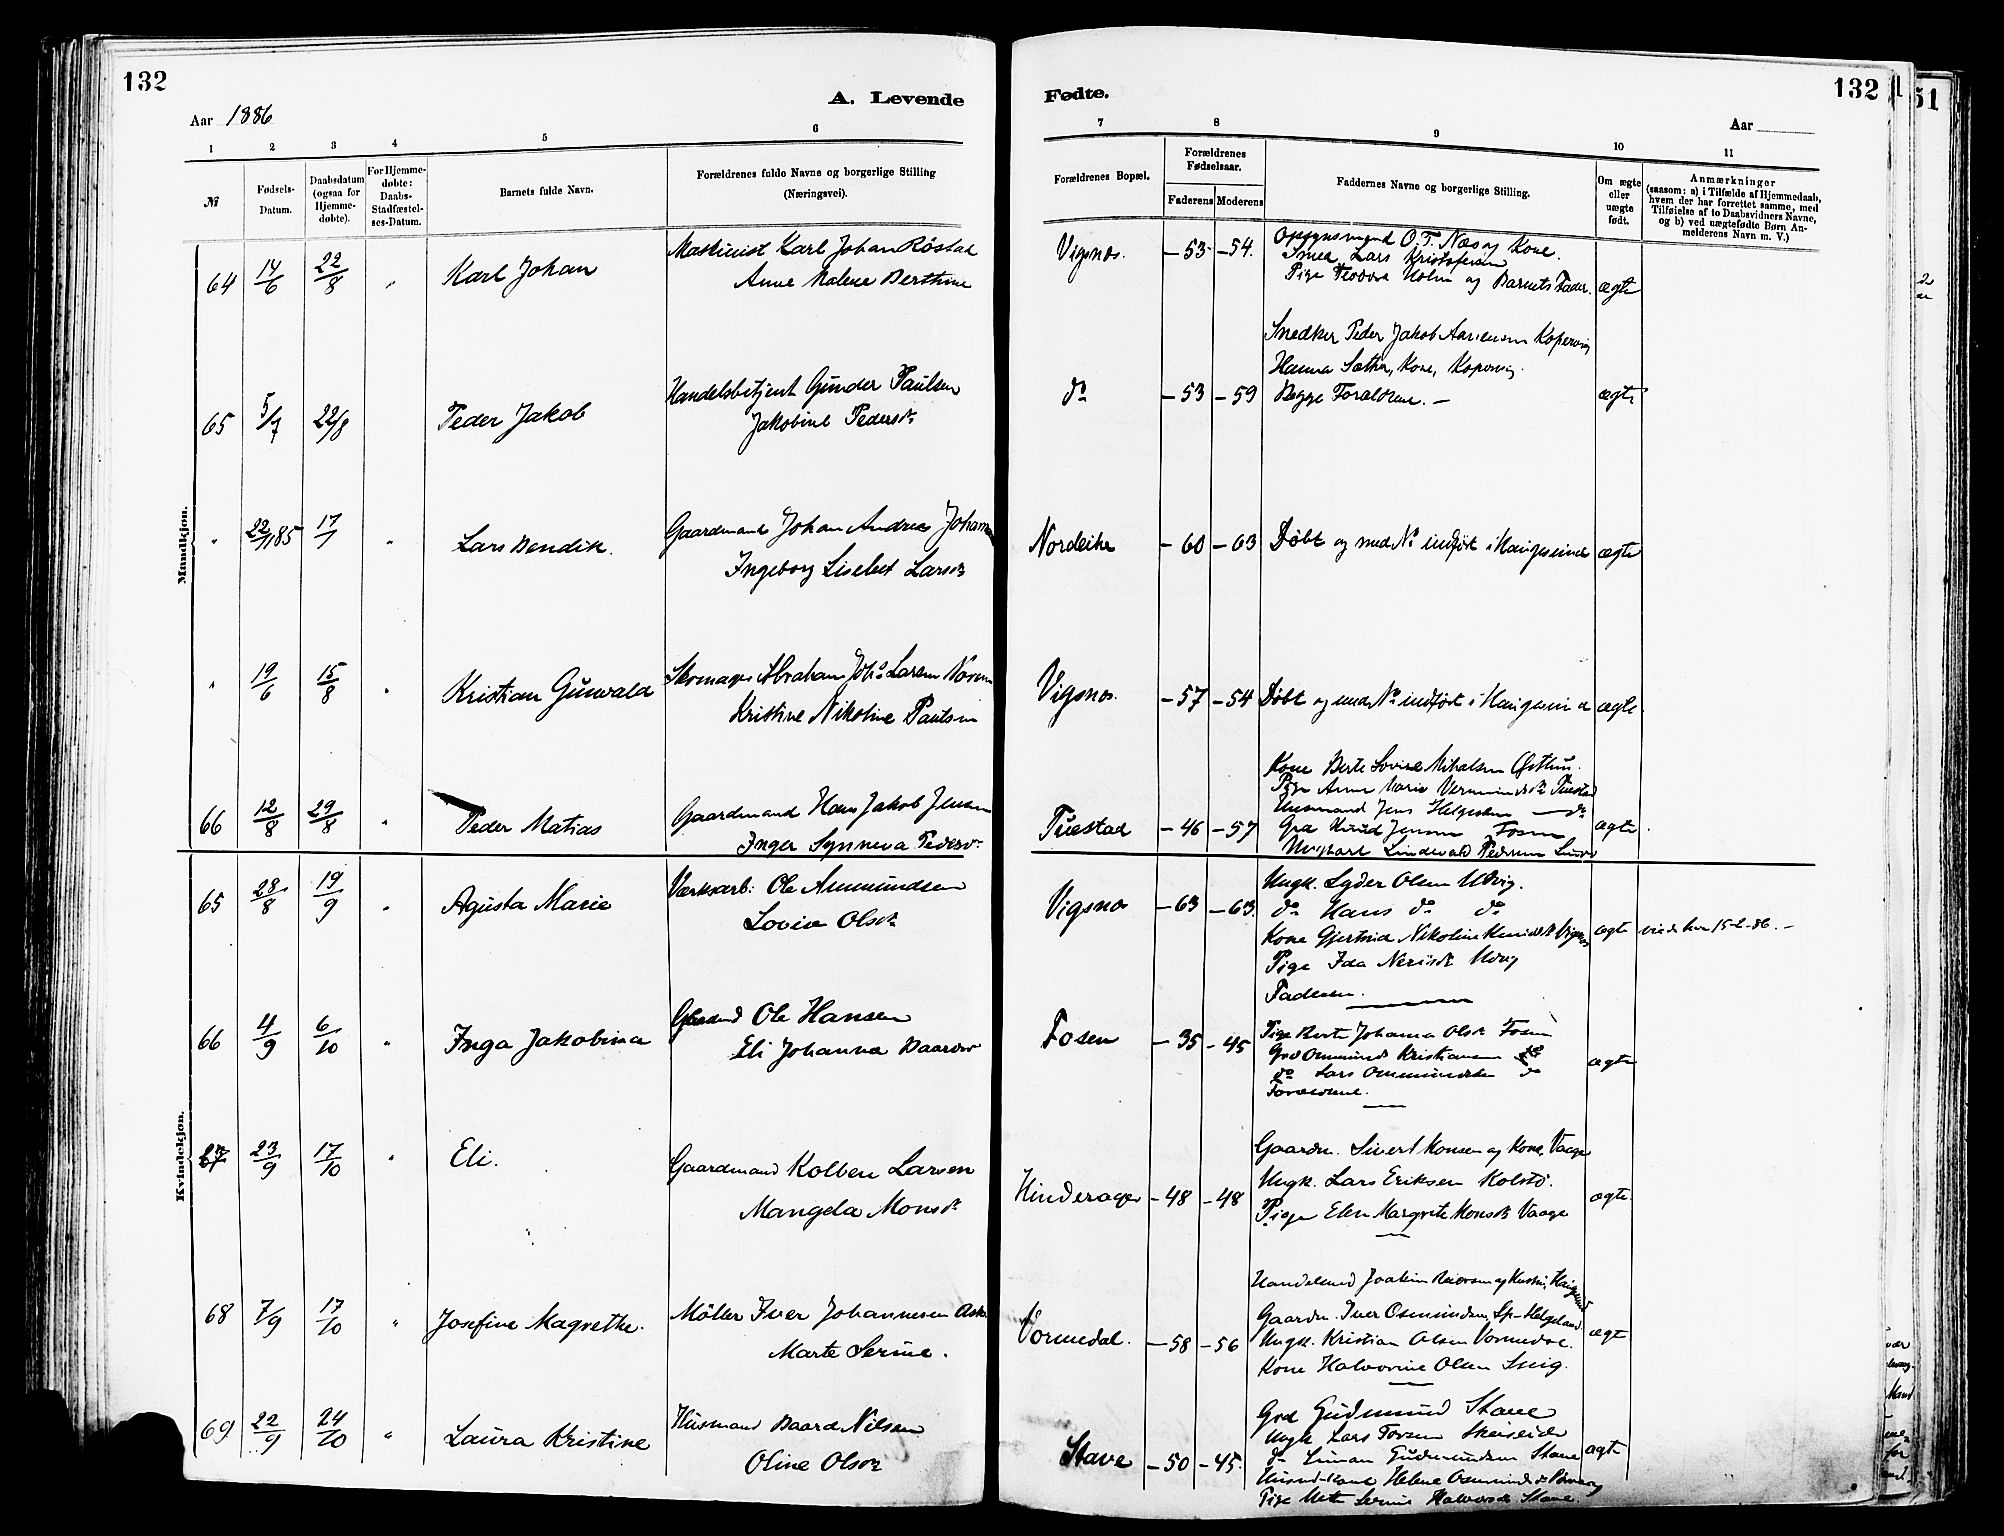 132
Aar 1886
A. Levende
1 2 3 4 5 6
№
Fødsels-Datum.
Daabsdatum (ogsaa for Hjemmedøbte).
For Hjemmedøbte: Daabs-Stadfæstelses-Datum.
Barnets fulde Navn.
Forældrenes fulde Navne og borgerlige Stilling (Næringsvei).
Mandkjøn.
64 14/6 22/8 " Karl Johan
Maskinist Karl Johan Røstad
Anne Malene Berthine
65 5/7 22/8 Peder Jakob
Handelsbetjent Gunder Paulsen
Jakobine Pedersdr
" 22/11 85 17/1 " Lars Bendik.
Gaardmand Johan Andreas Johann
Ingeborg Lisebet Larsdr
" 19/6 15/8 " Kristian Gunvald
Skomager Abraham Johs Larsen
Kristine Nikoline Paulsen
66 12/8 29/8 " Peder Matias
Gaardmand Hans Jakob Jensen
Inger Synneva Pedersdr
Kvindekjøn.
65 28/8 19/9 " Agusta Marie
Værksarb: Ole Ammundsen
Lovise Olsdr
66 4/9 6/10 " Inga Jakobina
Gaardmd Ole Hansen
Eli Johanna Baardsdr
67 23/9 17/10 " Eli.
Gaardmand Kolben Larsen
Mangela Monsdr
68 7/9 17/10 " Josefine Magrethe.
Möller Iver Johannesen
Marte Serine.
69 22/9 24/10 " Laura Kristine
Husmand Baard Nilsen
Oline Olsdr
Fødte.
132
Aar
7 8 9 10 11
Forældrenes Bopæl.
Forældrenes Fødselsaar.
Faderens Moderens
Faddernes Navne og borgerlige Stilling.
Om ægte eller uægte født.
Anmærkninger
(saasom: a) i Tilfælde af Hjemmedaab,
hvem der har forrettet samme, med
Tilføielse af to Daabsvidners Navne,
og b) ved uægtefødte Børn Anmelderens Navn m. V.)
Vigsnes. -53 -54.
Opsynsmand O. T. Næs og Kone.
Smed Lars Kristofersen
Pige Teodora Holm og Barnets Fader. ægte
do -53 -59
Snedker Peder Jakob Kopervig
Hanna Sæther, Kone, Kopervig.
Begge Forældrene. - ægte
Nordeike -60 -63 Døbt og med No indført i Haugesund ægte
Vigsnes. -57 -54 Døbt og med No indført i Haugesund ægte.
Tuestad -46 -57
Kone Berte Lovise Mikalsen Østhus.
Pige Anne Marie Tuestad
Husmand Jens Helgesen do
Grd Knud Jensen Fosen
Lindevald Pedersen
ægte
Vigsnes -63 -63.
Ungk. Lyder Olsen Udvig.
do Hans do do
Kone Gjertrud Nikoline Vigsnes
Pige Ida Nerisdr Udvig
Faderen.
ægte
Fosen -35 -45
Pige Berte Johanna Olsdr Fosen
Grd Ommund Kristiansen do
do Lars Ommundsen do
Forældrene.
ægte
Hinderager -48 -48
Gaardm. Sivert Monsen og Kone, Vaage
Ungk. Lars Eriksen Kolstø.
Pige Elen Margrete Monsdr Vaage
ægte.
Vormedal. -58 -56
Handelsmd Joakim
Gaardm. Iver Osmundsen, Helgeland
Ungk. Kristian Olsen Vormedal.
Kone Halvorine Olsen
ægt
Stave -50 -45.
Grd Gudmund Stave
Ungk Lars
do Gudmundsen Stave
Helene
Pige Mette Serine Halvorsdr Stave.
ægte